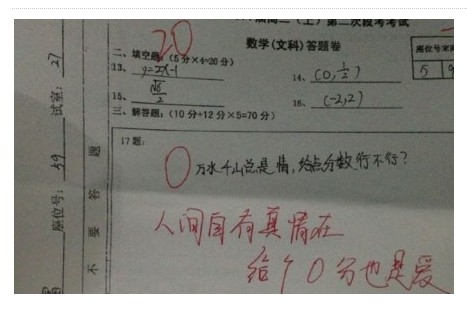 (上)第二次段考考试
数学(文科)答题卷
座位号末
5 9
20
二、填空题:(5分×4=20分)
13、y=2x-1
14、(0,1/2)
15、√6/2
16、(-2,2)
三、解答题:(10分+12分×5=70分)
17题:
0 万水千山总是情,给点分数行不行?
人间自有真情在
给个0分也是爱
试室:27
座位号:59
不要答题